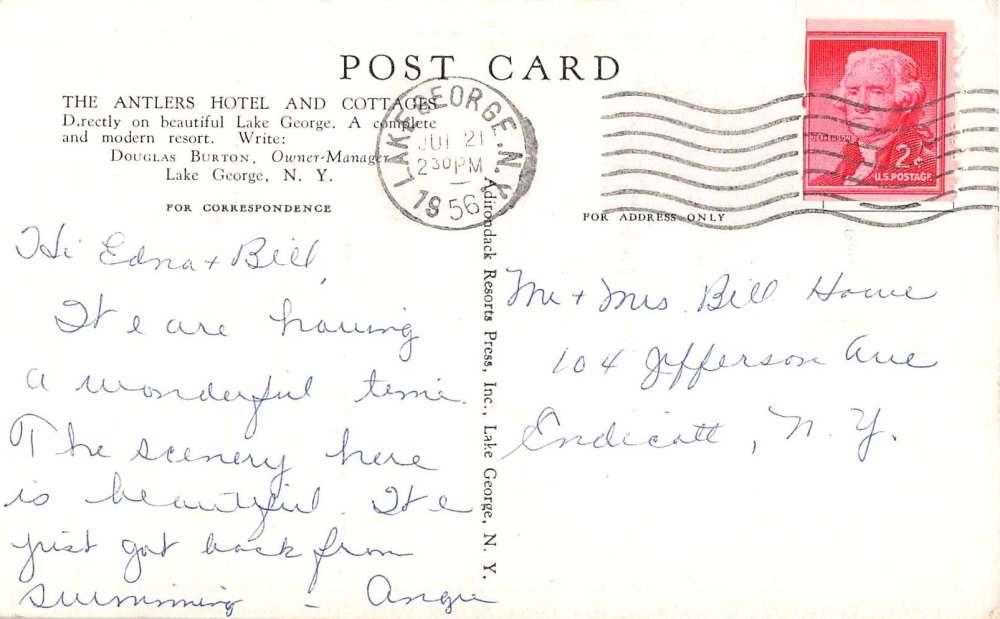 POST CARD
THE ANTLERS HOTEL AND COTTAGES
D.rectly on beautiful Lake George. A complete
and modern resort. Write:
DOUGLAS BURTON, Owner-Manager
Lake George, N. Y.
FOR CORRESPONDENCE
LAKE GEORGE, N.Y.
JUL 21
2 30 PM
1956
U.S. POSTAGE
2¢
FOR ADDRESS ONLY
Adirondack Resorts Press, Inc., Lake George, N. Y.
Hi Edna + Bill,
We are having
a wonderful time.
The scenery here
is beautiful. We
just got back from
swimming - Angie
Mr + Mrs. Bill Howe
104 Jefferson Ave
Endicott, N. Y.